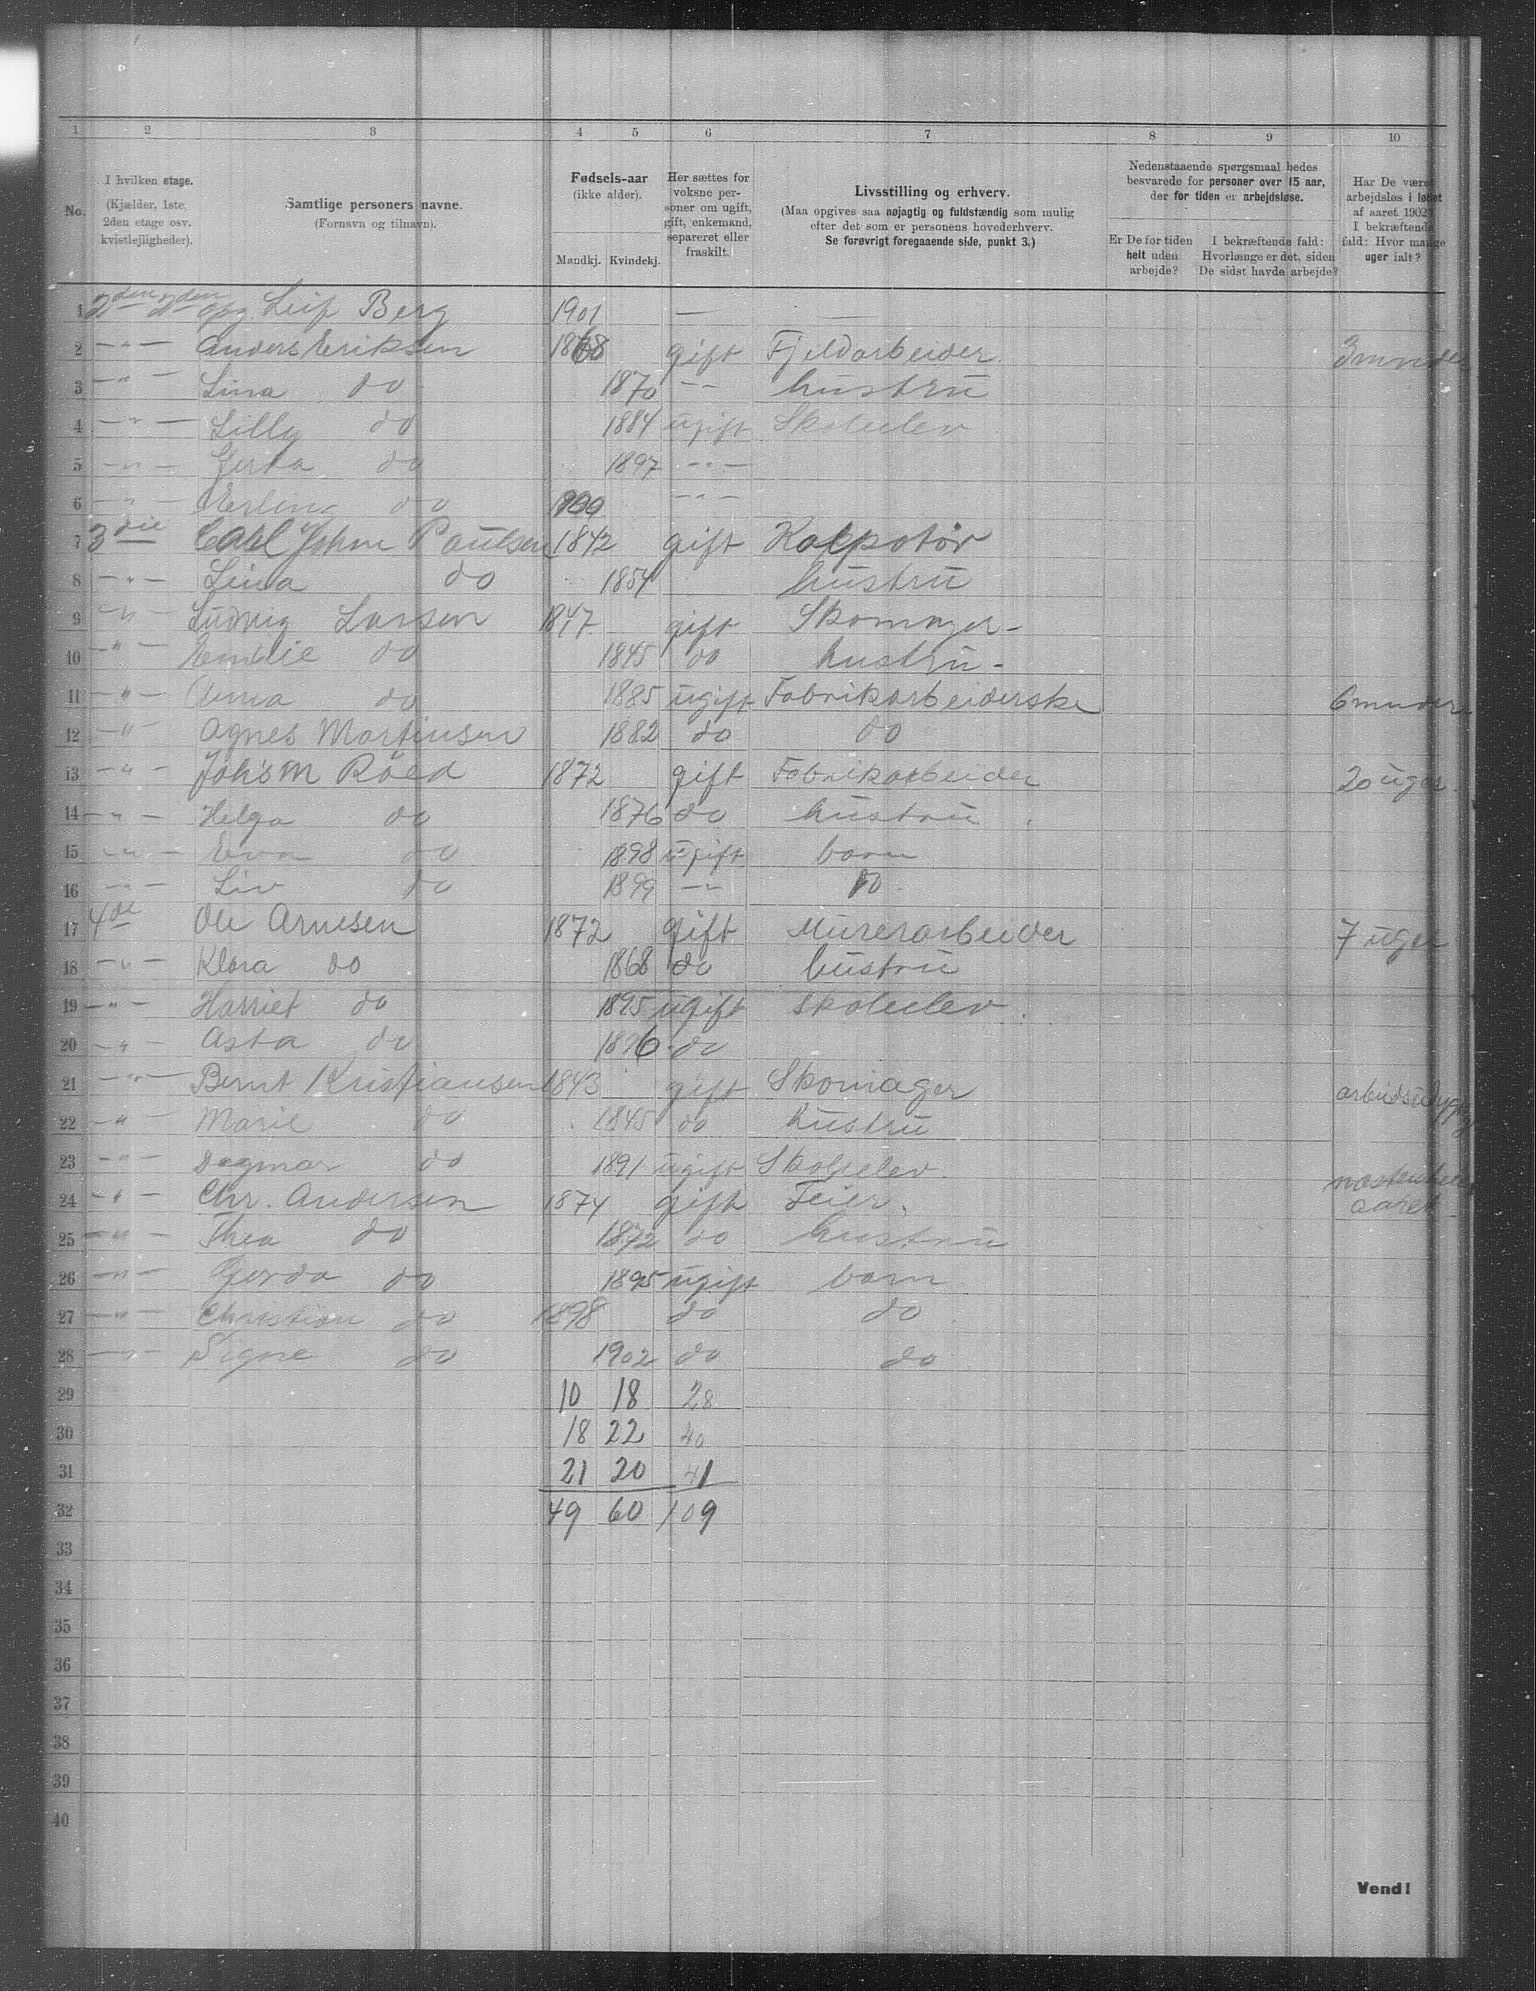 1 2 3 4 5 6 7 8 9 10
No. I hvilken etage. (Kjælder, 1ste, 2den etage osv. kvistlejligheder). Samtlige personers navne. (Fornavn og tilnavn). Fødsels-aar (ikke alder). Mandkj. Kvindekj. Her sættes for voksne personer om ugift, gift, enkemand, separeret eller fraskilt. Livsstilling og erhverv. (Maa opgives saa nøjagtig og fuldstændig som mulig efter det som er personens hovederhverv. Se forøvrigt foregaaende side, punkt 3.) Nedenstaaende spørgsmaal bedes besvarede for personer over 15 aar, der for tiden er arbejdsløse. Er De for tiden helt uden arbejde? I bekræftende fald: Hvorlænge er det, siden De sidst havde arbejde? Har De været arbejdsløs i løbet af aaret 1902? I bekræftende fald: Hvor mange uger ialt?
1 2den 2den opg. Leif Berg 1901 — —
2 — " — Anders Eriksen 1868 gift Fjeldarbeider. 3 mnder
3 — " — Lina do 1870 — " — hustru
4 — " — Lilly do 1884 ugift Skoleelev
5 — " — Gerta do 1897 — " —
6 — " — Erling do 1900 — " —
7 3die Carl Johne Paulsen 1842 gift Kolpotör
8 — " — Lina do 1854 hustru
9 — " — Ludvig Larsen 1847 gift Skomager -
10 — " — Emilie do 1845 do hustru -
11 — " — Anna do 1885 ugift Fabrikarbeiderske 6 mnder
12 — " — Agnes Martinsen 1882 do do
13 — " — Johs M Röed 1872 gift Fabrikarbeider 20 uger.
14 — " — Helga do 1876 do hustru.
15 — " — Eva do 1898 ugift barn
16 — " — Liv do 1899 — " — do
17 4de Ole Arnesen 1872 gift Murerarbeider 7 uger
18 — " — Klara do 1868 do hustru
19 — " — Harriet do 1895 ugift skoleelev.
20 — " — Asta do 1896 do
21 — " — Bernt Kristiansen 1843 gift Skomager arbeidsudygtig
22 — " — Marie do 1845 do hustru
23 — " — Dagmar do 1891 ugift Skoleelev
24 — " — Chr. Andersen 1874 gift Feier. næsten hele aaret.
25 — " — Thea do 1872 do hustru
26 — " — Gerda do 1895 ugift barn
27 — " — Christian do 1898 do do
28 — " — Signe do 1902 do do
29 10 18 28
30 18 22 40
31 21 20 41
32 49 60 109
33
34
35
36
37
38
39
40
Vend!